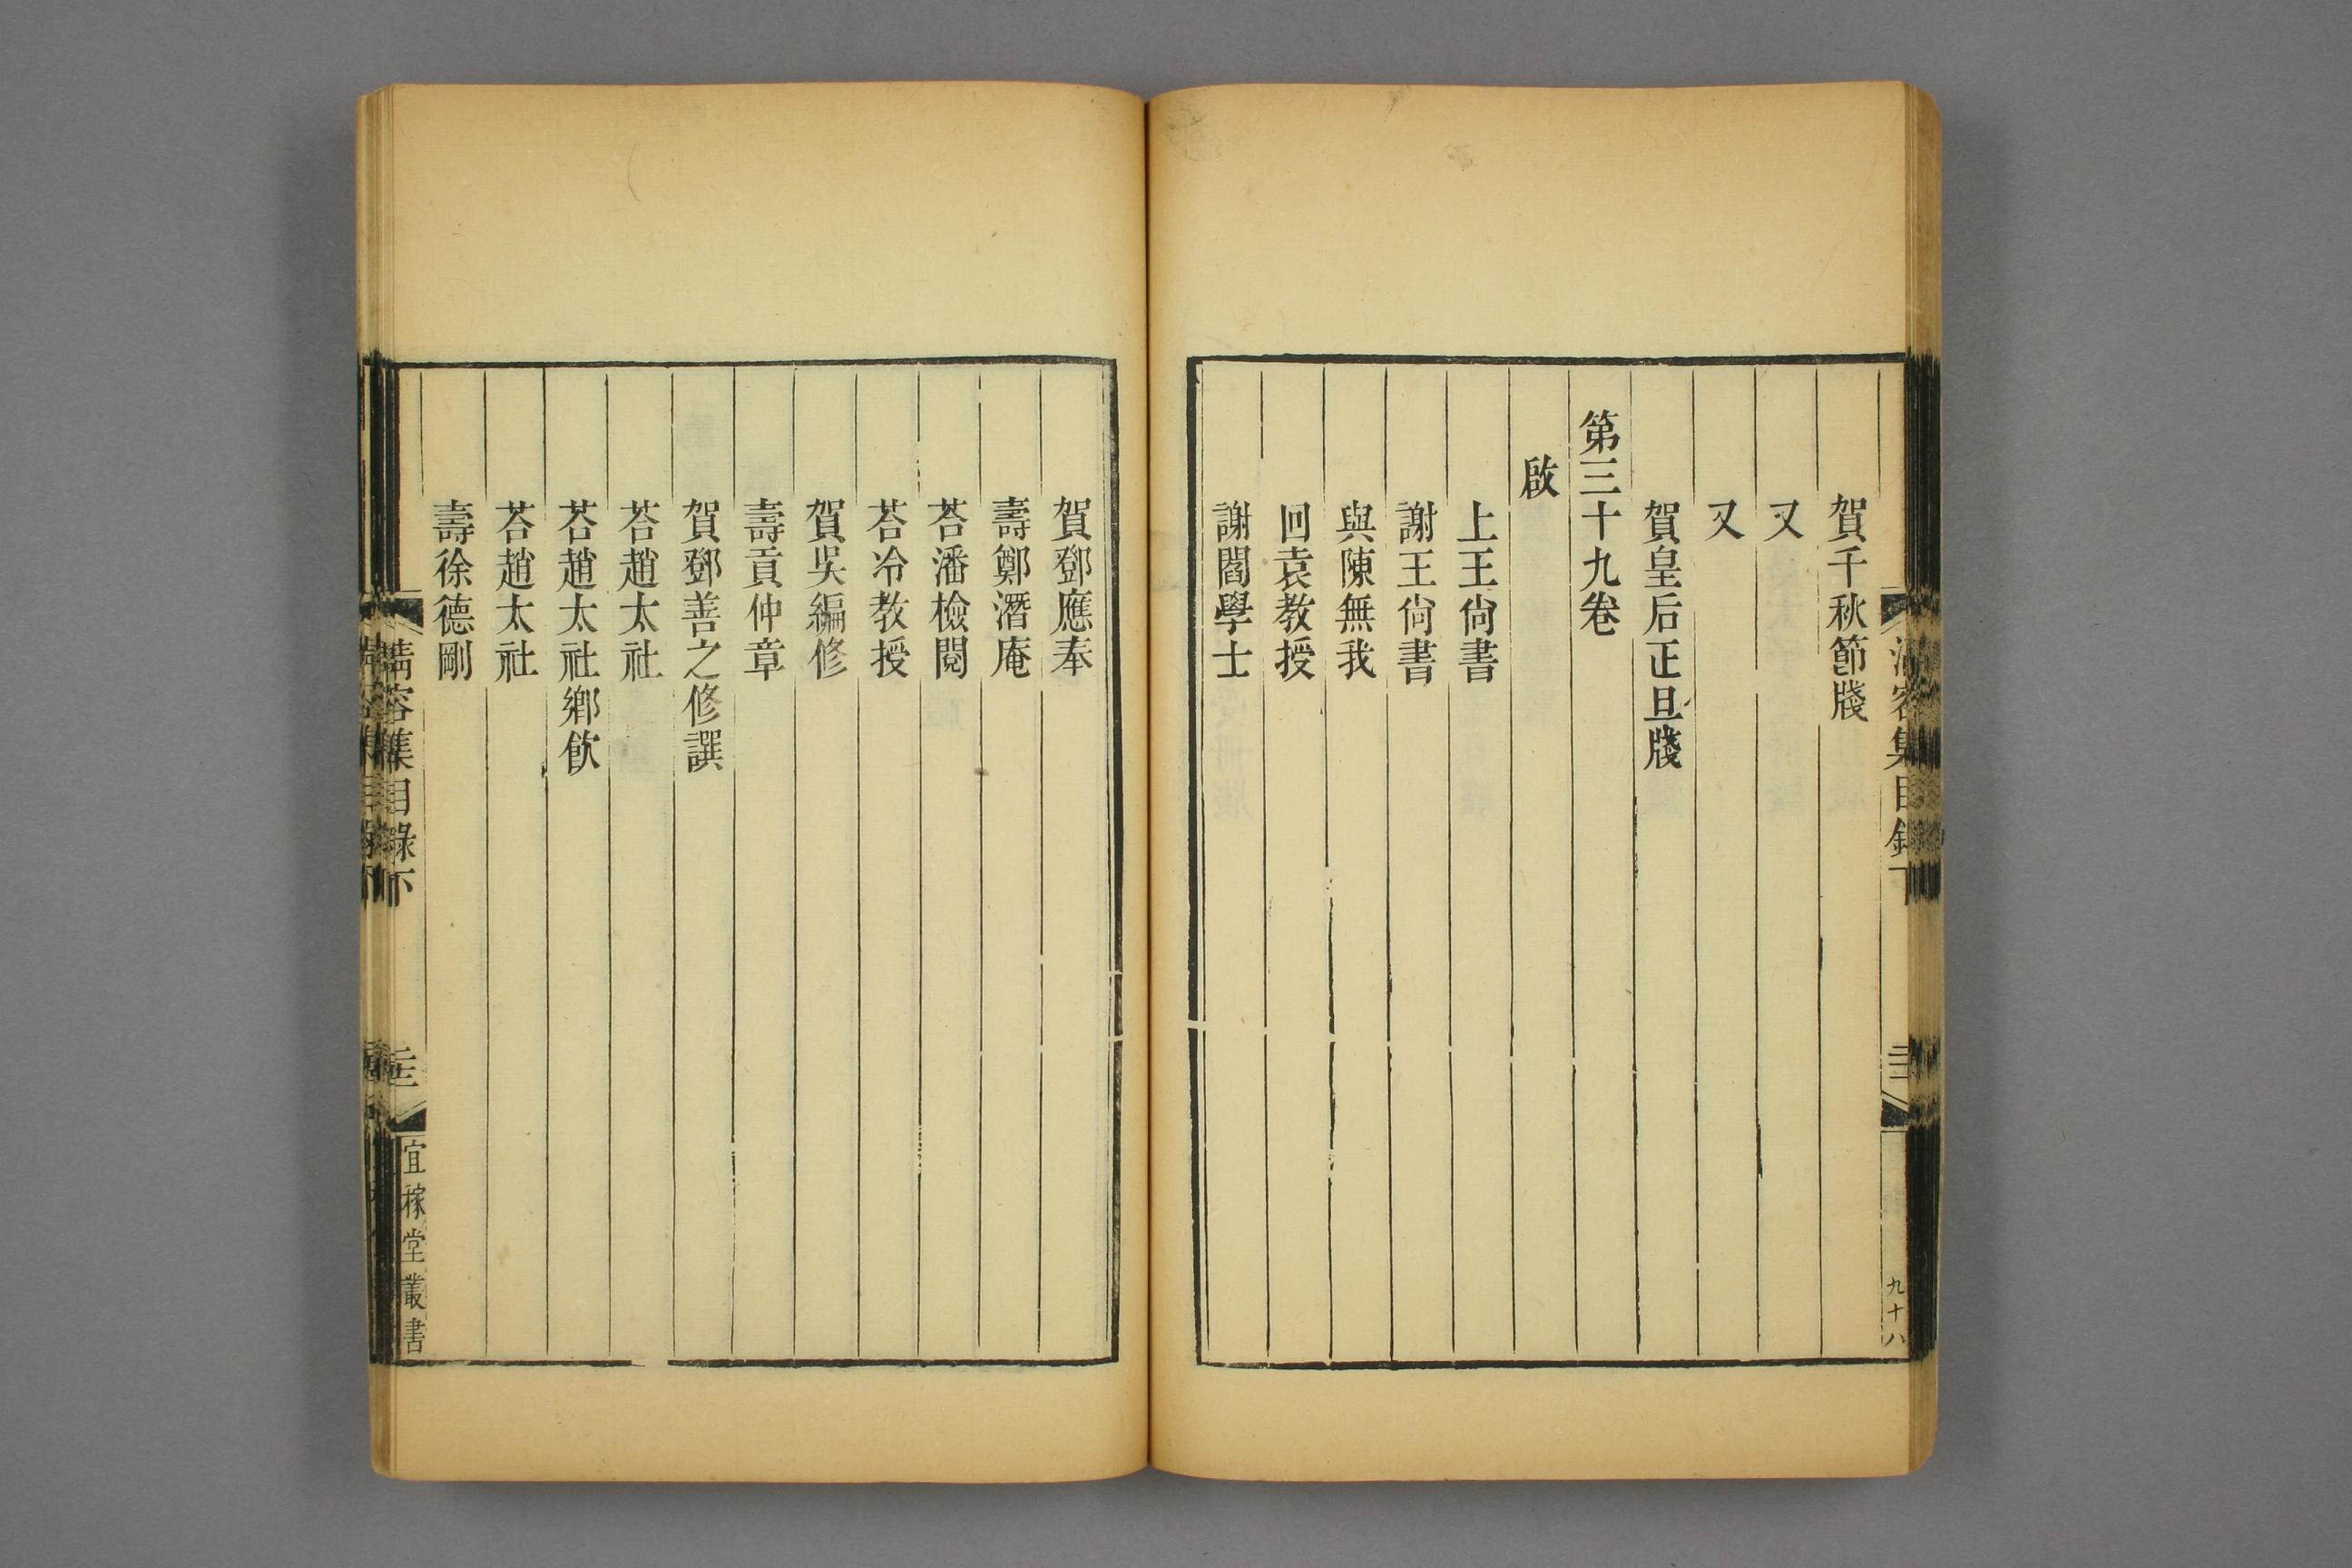 賀千秋節牋
又
又
賀皇后正旦牋
第三十九卷
啟
上王尙書
謝王尙書
與陳無我
回袁教授
謝閻學士
九十八
賀鄧應奉
壽鄭潛庵
荅潘檢閱
荅冷教授
賀吳編修
壽貢仲章
賀鄧善之修譔
荅趙太社
荅趙太社鄉飮
荅趙太社
壽徐德剛
清容集目錄下
宜稼堂叢書